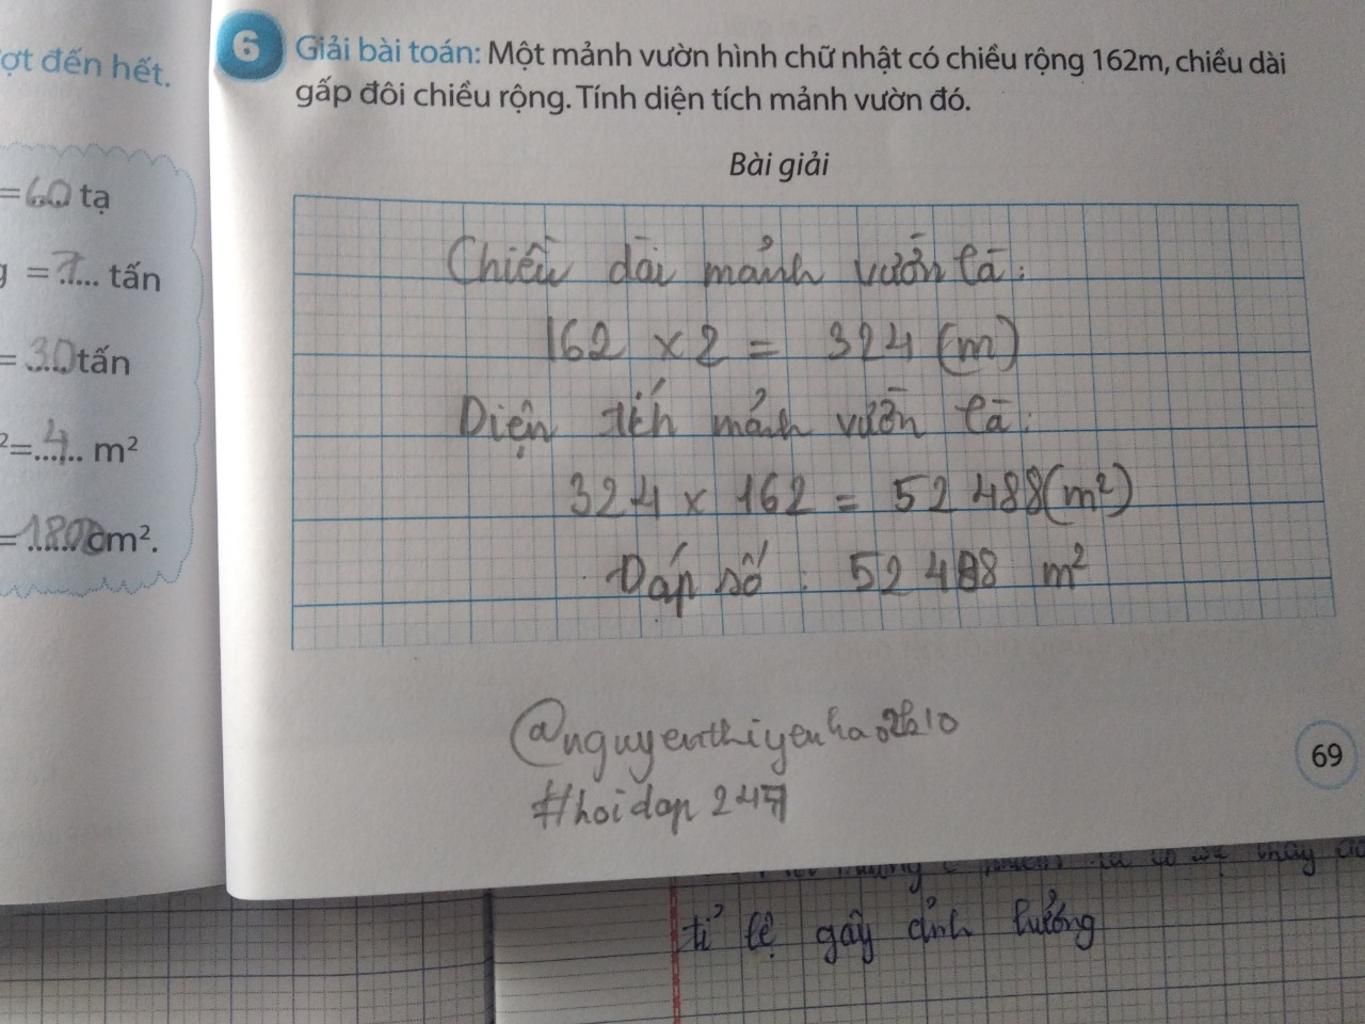 ợt đến hết.
=60 tạ
g =7.... tấn
=30tấn
²=..4... m²
=1800cm².
6 Giải bài toán: Một mảnh vườn hình chữ nhật có chiều rộng 162m, chiều dài
gấp đôi chiều rộng. Tính diện tích mảnh vườn đó.
Bài giải
Chiều dài mảnh vườn là:
162 × 2 = 324 (m)
Diện tích mảnh vườn là:
324 × 162 = 52 488(m²)
Đáp số : 52 488 m²
#hoidap 247
69
tỉ lệ gây ảnh hưởng